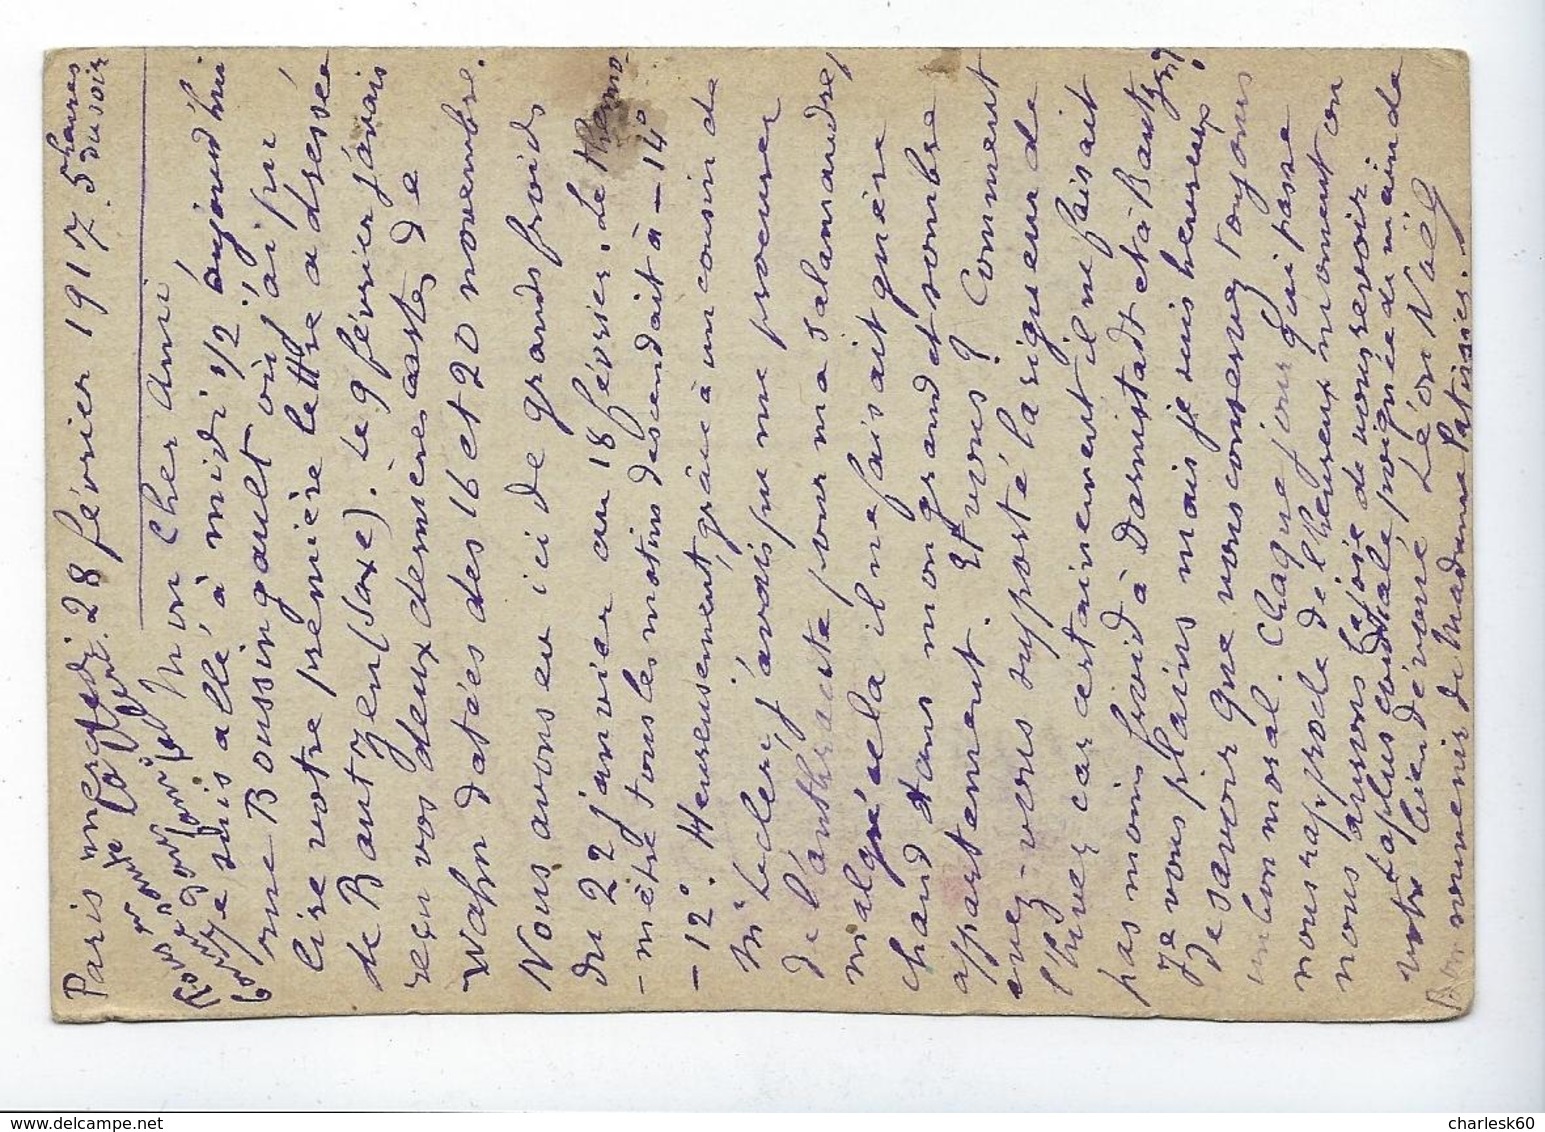 Paris mercredi 28 février 1917. 5 heures
du soir
Mon cher Ami
Je suis allé, à midi 1/2 aujourd'hui
rue Boussingault où j'ai pu
lire votre première lettre adressée
de Bautzen (Saxe). Le 9 février j'avais
reçu vos deux dernières cartes de
Wahn datées des 16 et 20 novembre.
Nous avons eu ici de grands froids
du 22 janvier au 18 février. Le thermo-
-mètre tous les matins descendait à -14°
-12°. Heureusement, grâce à un cousin de
Mr Leclerc, j'avais pu me procurer
de l'anthracite pour ma salamandre,
malgré cela il ne faisait guère
chaud dans mon grand et sombre
appartement. Et vous? Comment
avez-vous supporté la rigueur de
l'hiver car certainement il ne faisait
pas moins froid à Darmstadt et à Bautzen,
Je vous plains mais je suis heureux
de savoir que vous conservez toujours
un bon moral. Chaque jour qui passe
nous rapproche de l'heureux moment où
nous aurons la joie de vous revoir.
La plus cordiale poignée de main de
votre bien dévoué Léon Noël
Bon souvenir de Madame Patissier.